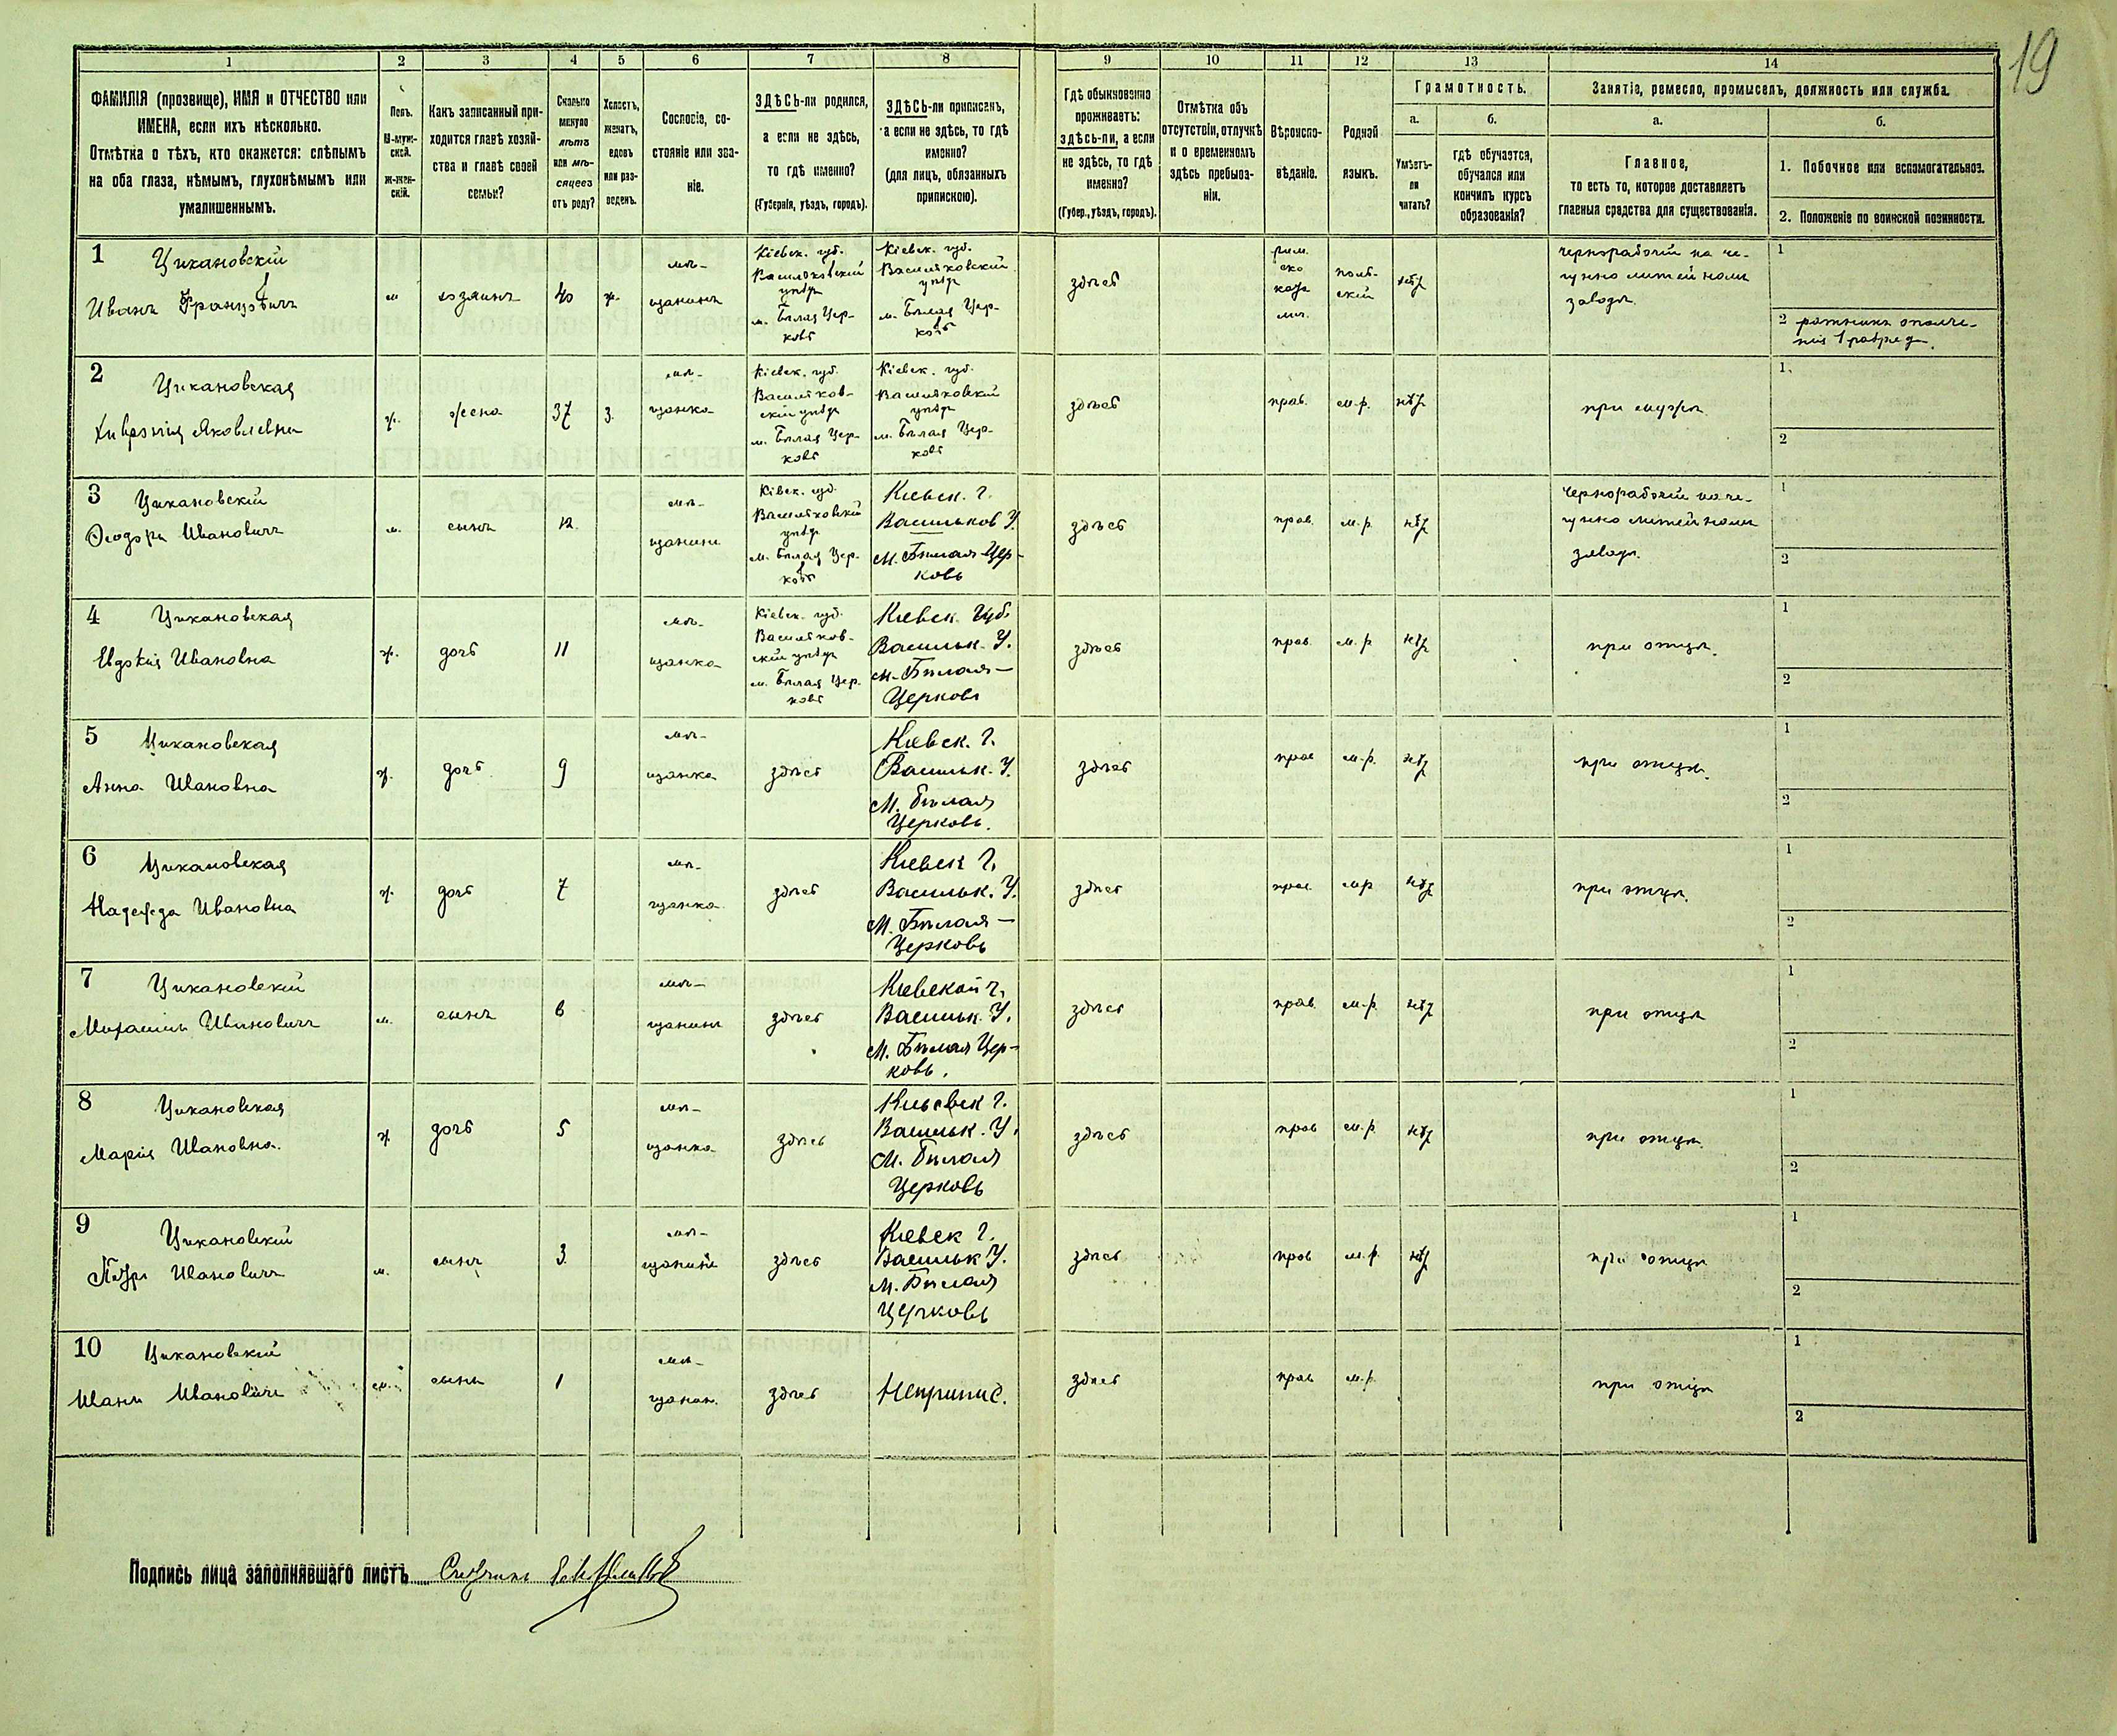 19
1 2 3 4 5 6 7 8 9 10 11 12 13 14
ФАМИЛІЯ (прозвище), ИМЯ и ОТЧЕСТВО или
ИМЕНА, если ихъ нѣсколько.
Отмѣтка о тѣхъ, кто окажется: слѣпымъ
на оба глаза, нѣмымъ, глухонѣмымъ или
умалишеннымъ.
Полъ.
М-муж-
ской.
ж-жен-
скій.
Какъ записанный при-
ходится главѣ хозяй-
ства и главѣ своей
семьи?
Сколько
минуло
лѣтъ
или мѣ-
сяцевъ
отъ роду?
Холостъ,
женатъ,
вдовъ
или раз-
веденъ.
Сословіе, со-
стояніе или зва-
ніе.
ЗДѢСЬ-ли родился,
а если не здѣсь,
то гдѣ именно?
(Губернія, уѣздъ, городъ).
ЗДѢСЬ-ли приписанъ,
а если не здѣсь, то гдѣ
именно?
(для лицъ, обязанныхъ
припискою).
Гдѣ обыкновенно
проживаетъ:
здѣсь-ли, а если
не здѣсь, то гдѣ
именно?
(Губер., уѣздъ, городъ).
Отмѣтка объ
отсутствіи, отлучкѣ
и о временномъ
здѣсь пребыва-
ніи.
Вѣроиспо-
вѣданіе.
Родной
языкъ.
Грамотность.
а.
Умѣетъ-
ли
читать?
б.
гдѣ обучается,
обучался или
кончилъ курсъ
образованія?
Занятіе, ремесло, промыселъ, должность или служба.
а.
Главное,
то есть то, которое доставляетъ
главныя средства для существованія.
б.
1. Побочное или вспомогательное.
2. Положеніе по воинской повинности.
1 Цихановскій
Иванъ Францовичъ
м
хозяинъ
40
ж.
мѣ-
щанинъ
Кіевск. губ.
Васильковскій
уѣздъ
м. Бѣлая Цер-
ковь
Кіевск. губ.
Васильковскій
уѣздъ
м. Бѣлая Цер-
ковь
здѣсь
рим.
ско
като
лич.
поль-
скій
нѣт
чернорабочій на че-
гунно литейномъ
заводѣ
1
2 ратникъ ополче-
нія 1 разряд.
2 Цихановская
Хивронія Яковлевна
ж.
жена
37
З.
мѣ-
щанка
Кіевск. губ.
Васильков-
скій уѣздъ
м. Бѣлая Цер-
ковь
Кіевск. губ.
Васильковскій
уѣздъ
м. Бѣлая Цер-
ковь
здѣсь
прав.
м.-р.
нѣт
при мужѣ
1.
2
3 Цихановскій
Ѳеодоръ Ивановичъ
м.
сынъ
12
мѣ-
щанинъ
Кіевск. губ.
Васильковскій
уѣздъ
м. Бѣлая Цер-
ковь
Киевск. г.
Васильков У.
м. Бѣлая Цер-
ковь
здѣсь
прав.
м.-р.
нѣт
чернорабочій на че-
гунно литейномъ
заводѣ.
1
2
4 Цихановская
Евдокія Ивановна
ж.
дочь
11
мѣ-
щанка
Кіевск. губ.
Васильков-
скій уѣздъ
м. Бѣлая Цер-
ковь
Киевск. Губ.
Васильк. У.
м. Бѣлая-
Церковь
здѣсь
прав.
м.-р
нѣт
при отцѣ.
1
2
5 Цихановская
Анна Ивановна
ж.
дочь
9
мѣ-
щанка
здѣсь
Киевск. г.
Васильк. У.
М. Бѣлая
Церковь.
здѣсь
прав
м.-р.
нѣт
при отцѣ.
1
2
6 Цихановская
Надежда Ивановна
ж.
дочь
7
мѣ-
щанка
здѣсь
Киевск г.
Васильк. У.
М. Бѣлая-
Церковь
здѣсь
прав
м-р
нѣт
при отцѣ.
1
2
7 Цихановскій
Михаилъ Ивановичъ
м.
сынъ
6
мѣ-
щанинъ
здѣсь
Киевской г.
Васильк. У.
М. Бѣлая Цер-
ковь.
здѣсь
прав.
м.-р.
нѣт
при отцѣ
1
2
8 Цихановская
Марія Ивановна.
ж
дочь
5
мѣ-
щанка
здѣсь
Киевск г.
Васильк. У.
М. Бѣлая
Церковь
здѣсь
прав
м.-р.
нѣт
при отцѣ.
1
2
9 Цихановскій
Петръ Ивановичъ
м.
сынъ
3
мѣ-
щанинъ
здѣсь
Киевск г.
Васильк У.
М. Бѣлая
Церковь
здѣсь
прав
м.-р.
нѣт
при отцѣ
1
2
10 Цихановскій
Иванъ Ивановичъ
м.
сынъ
1
мѣ-
щанин.
здѣсь
Неприпис.
здѣсь
прав
м.-р.
при отцѣ
1
2
Подпись лица заполнявшаго листъ